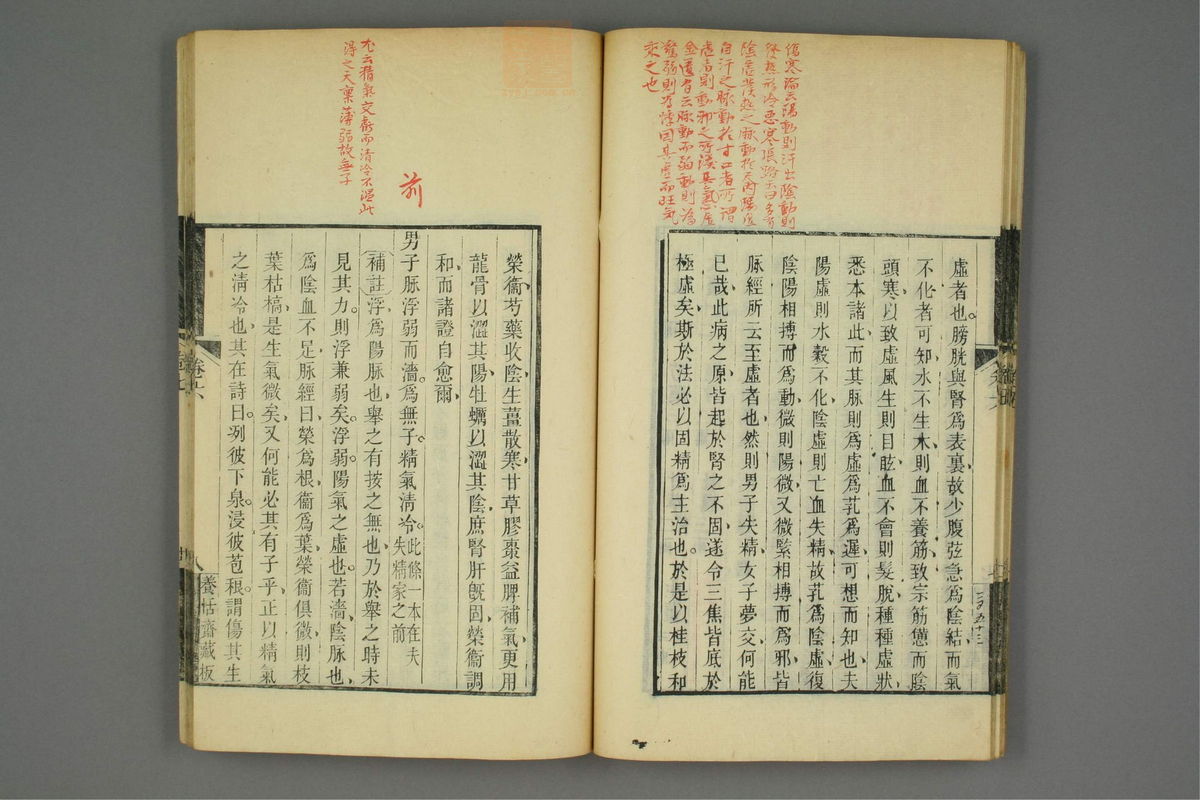 傷寒論云陽動則汗出陰動則
發熱形冷惡寒
陰虛發熱之脉動於尺內陽虛
自汗之脉動於寸口者所謂
虛者則動邪之所湊其氣必虛
金匱有云脉動而弱動則為
驚弱則為悸因其虛而旺氣
乘之也
虛者也膀胱與腎爲表裏故少腹弦急爲陰結而氣
不化者可知水不生木則血不養筋致宗筋憊而陰
頭寒以致虛風生則目眩血不會則髮脫種種虛狀
悉本諸此而其脉則爲虛爲芤爲遲可想而知也夫
陽虛則水穀不化陰虛則亡血失精故芤爲陰虛復
陰陽相搏而爲動微則陽微又微緊相搏而爲邪皆
脉經所云至虛者也然則男子失精女子夢交何能
已哉此病之原皆起於腎之不固遂令三焦皆底於
極虛矣斯於法必以固精爲主治也於是以桂枝和
尤云精氣交虧而清冷不溫此
得之天稟薄弱故無子
前
榮衞芍藥收陰生薑散寒甘草膠棗益脾補氣更用
龍骨以澀其陽牡蠣以澀其陰庶腎肝旣固榮衞調
和而諸證自愈爾
男子脉浮弱而濇爲無子精氣清冷此條一本在夫
失精家之前
補註浮爲陽脉也舉之有按之無也乃於舉之時未
見其力則浮兼弱矣浮弱陽氣之虛也若濇陰脉也
爲陰血不足脉經曰榮爲根衞爲葉榮衞俱微則枝
葉枯槁是生氣微矣又何能必其有子乎正以精氣
之清冷也其在詩曰冽彼下泉浸彼苞稂謂傷其生
卷六
八
養恬齋藏板